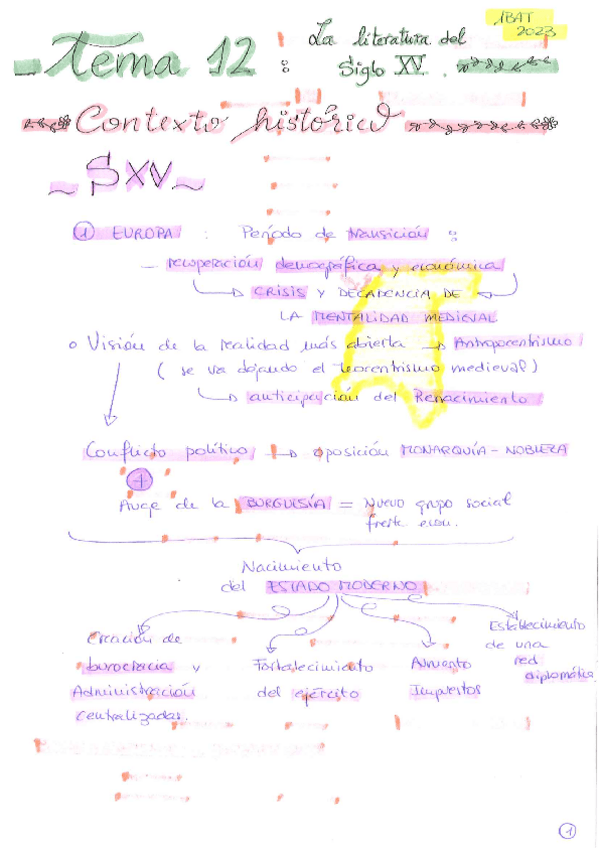 Tema 12 : La literatura del
Siglo XV.
1BAT
2023
Contexto histórico
~ S XV ~
① EUROPA : Período de transición :
- recuperación demográfica y económica
CRISIS Y DECADENCIA DE
LA MENTALIDAD MEDIEVAL
o Visión de la realidad más abierta → Antropocentrismo
( se va dejando el teocentrismo medieval)
↳ anticipación del Renacimiento
Conflicto político → oposición MONARQUÍA - NOBLEZA
+
Auge de la BURGUESÍA = Nuevo grupo social
frente
Nacimiento
del ESTADO MODERNO
Creación de
burocracia y
Administración
centralizadas.
Fortalecimiento
del ejército
Aumento
Impuestos
Establecimiento
de una
red
diplomática
1